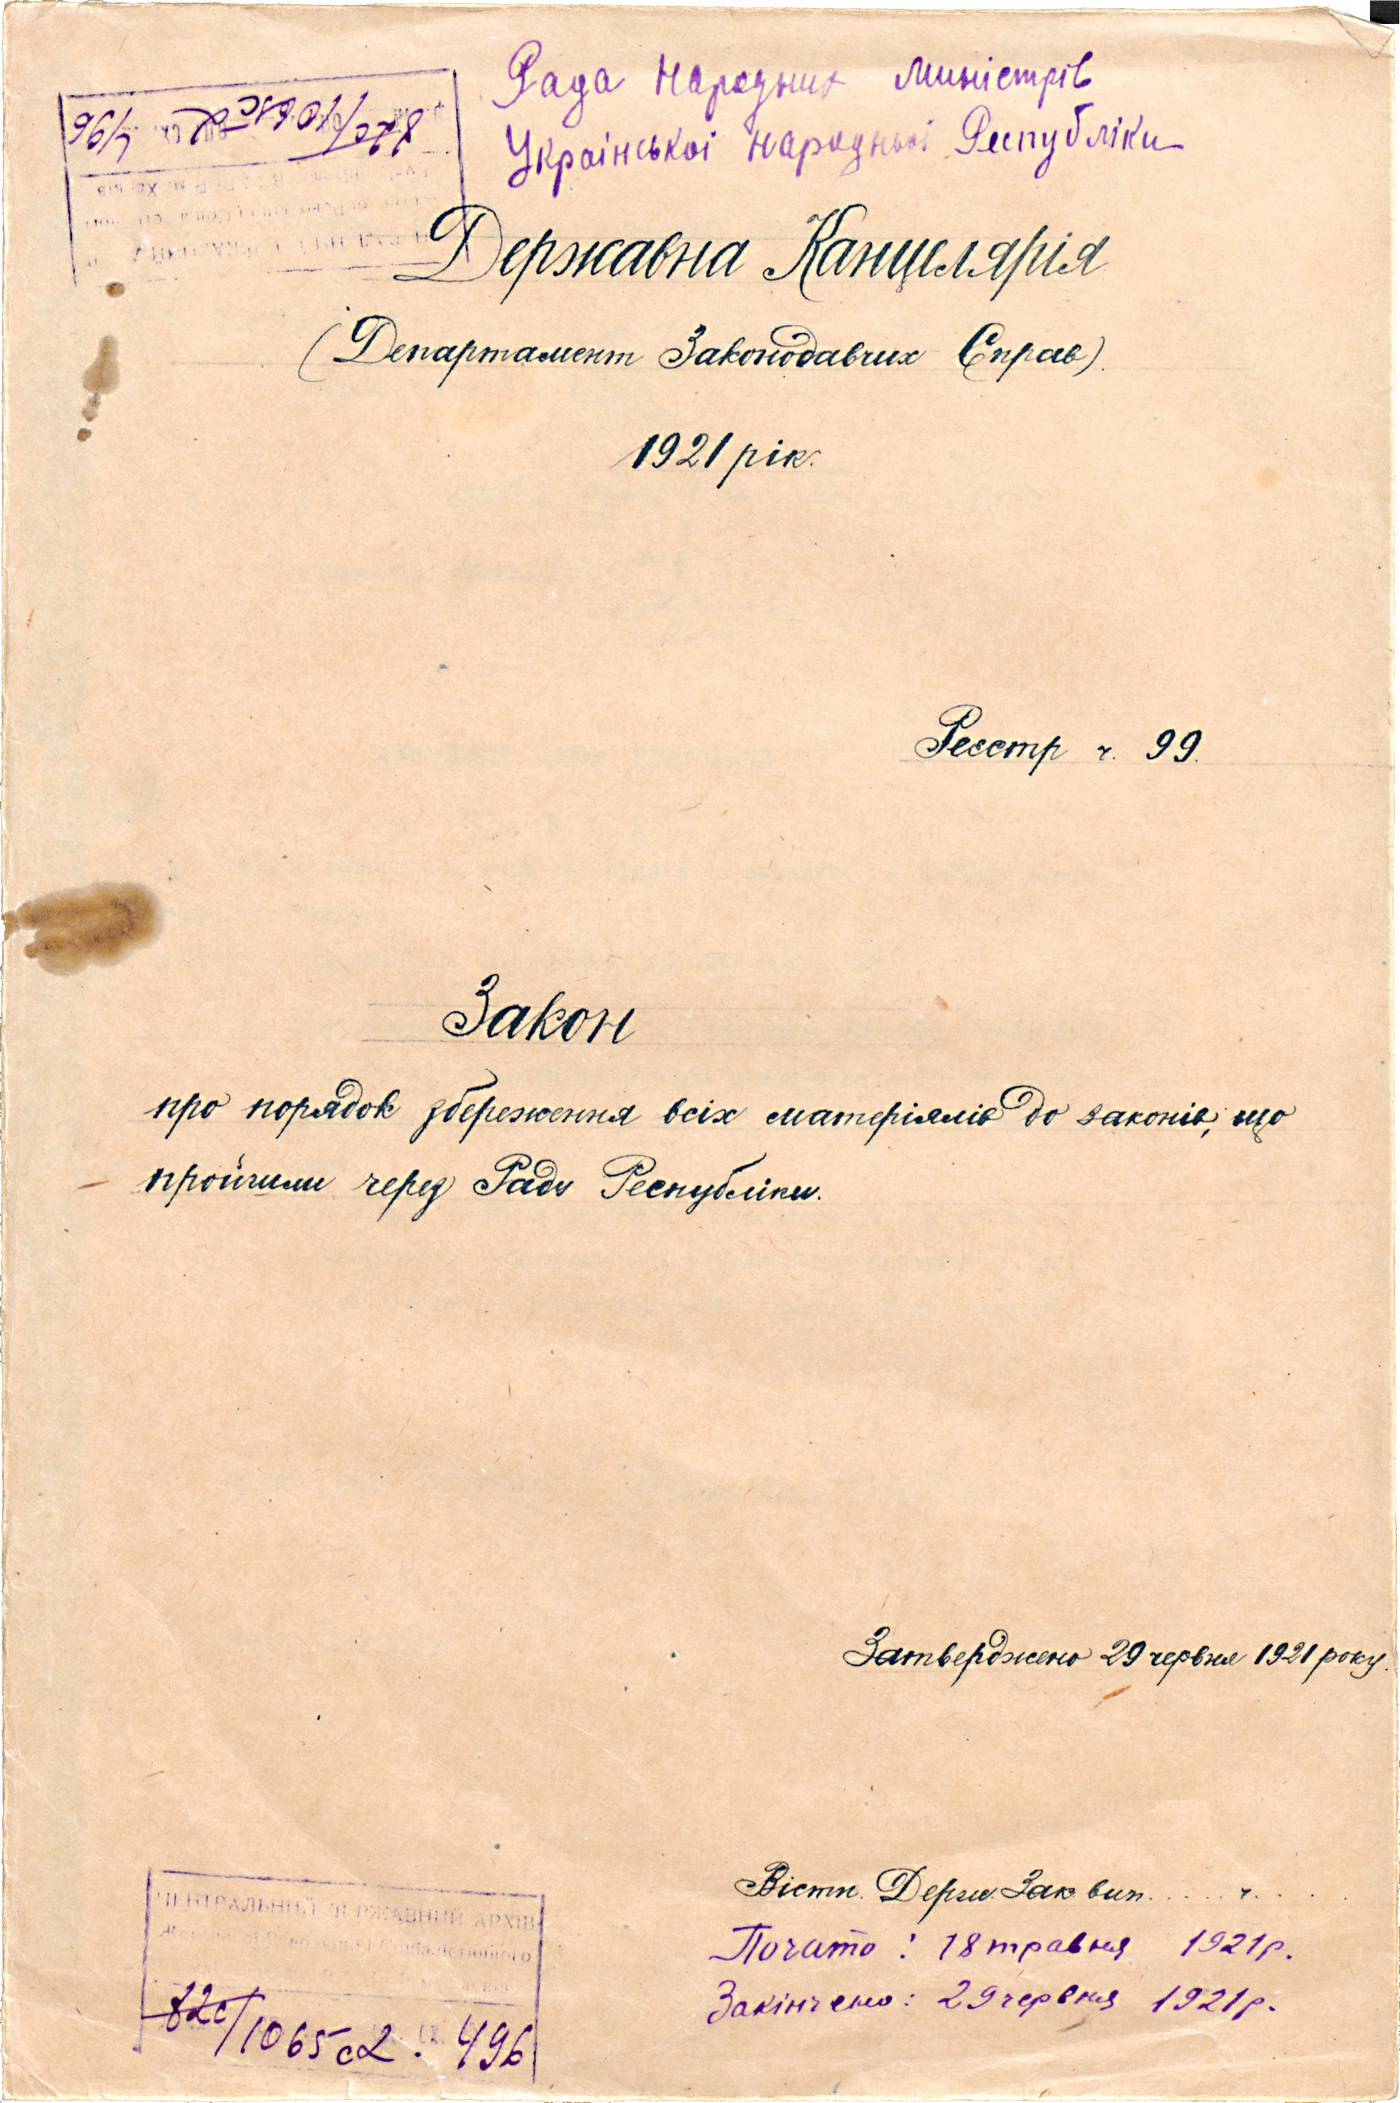 Рада Народних Міністрів
Української Народньої Республіки
Державна Канцелярія
(Департамент Законодавчих Справ).
1921 рік.
Реєстр ч. 99.
Закон
про порядок збереження всіх матеріялів до законів, що
пройшли через Раду Республіки.
Затверджено 29 червня 1921 року.
Вістн. Держ. Зак. вип. . . . . ч. . . .
Почато: 18 травня 1921 р.
Закінчено: 29 червня 1921 р.
ЦЕНТРАЛЬНИЙ ДЕРЖАВНИЙ АРХІВ
82с/1065 с2. 496